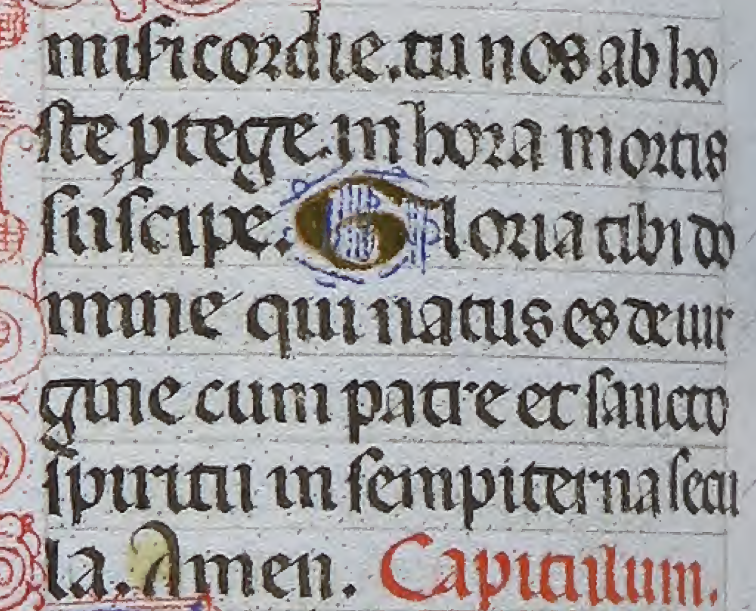 misericordie. tu nos ab ho
ste ꝓtege. in hora mortis
suscipe. Gloria tibi do
mine qui natus es de uir
gine cum patre et sancto
spiritu in sempiterna secu
la. Amen. Capitulum.